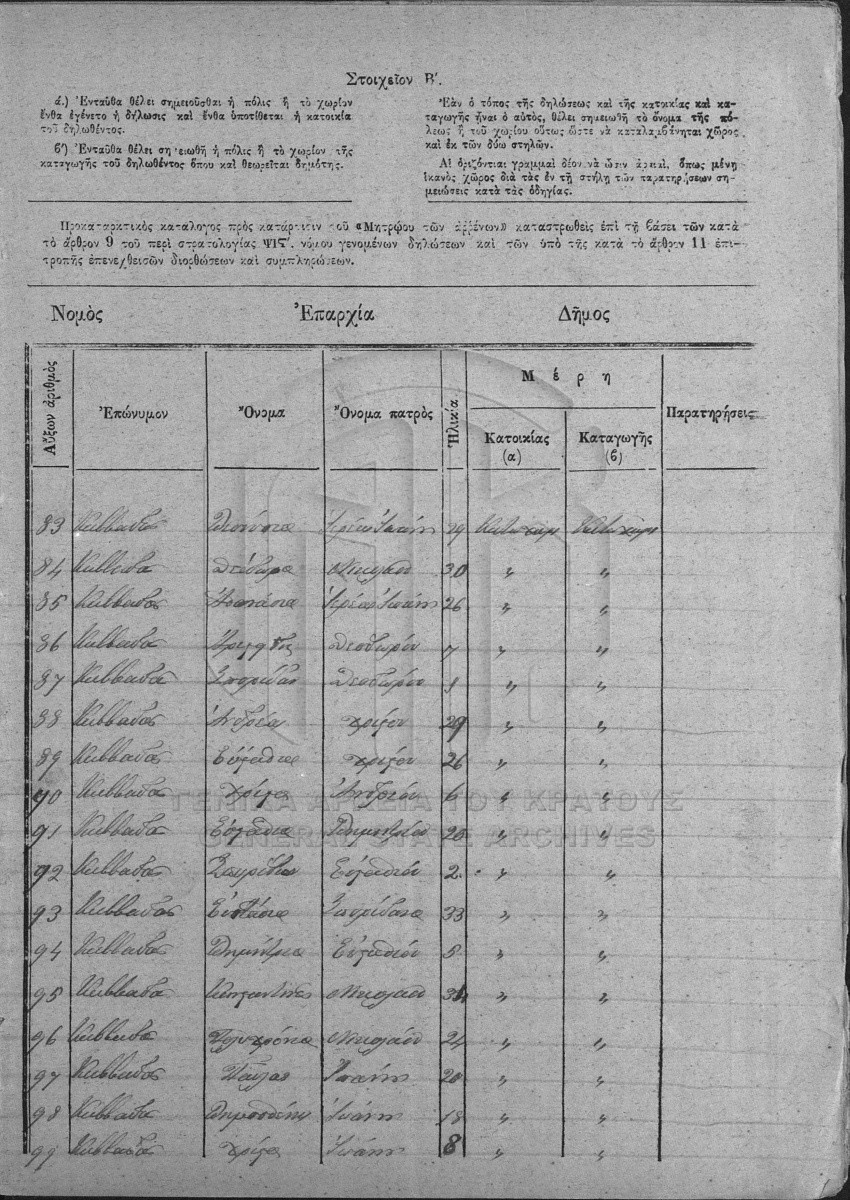 Στοιχεῖον Β΄.
ά.) Ἐνταῦθα θέλει σημειοῦσθαι ἡ πόλις ἢ τὸ χωρίον
ἔνθα ἐγένετο ἡ δήλωσις καὶ ἔνθα ὑποτίθεται ἡ κατοικία
τοῦ δηλωθέντος.
β΄) Ἐνταῦθα θέλει σημειωθῆ ἡ πόλις ἢ τὸ χωρίον τῆς
καταγωγῆς τοῦ δηλωθέντος ὅπου καὶ θεωρεῖται δημότης.
Ἐὰν ὁ τόπος τῆς δηλώσεως καὶ τῆς κατοικίας καὶ κα-
ταγωγῆς ἦναι ὁ αὐτὸς, θέλει σημειωθῆ τὸ ὄνομα τῆς πό-
λεως ἢ τοῦ χωρίου οὕτως ὥστε νὰ καταλαμβάνηται χῶρος
καὶ ἐκ τῶν δύω στηλῶν.
Αἱ ὁριζόντιαι γραμμαὶ δέον νὰ ὦσιν ἀραιαὶ, ὅπως μένῃ
ἱκανὸς χῶρος διὰ τὰς ἐν τῇ στήλῃ τῶν παρατηρήσεων ση-
μειώσεις κατὰ τὰς ὁδηγίας.
Προκαταρκτικὸς κατάλογος πρὸς κατάρτισιν τοῦ «Μητρῴου τῶν ἀρρένων» καταστρωθεὶς ἐπὶ τῇ βάσει τῶν κατὰ
τὸ ἄρθρον 9 τοῦ περὶ στρατολογίας ΨΙϚ΄. νόμου γενομένων δηλώσεων καὶ τῶν ὑπὸ τῆς κατὰ τὸ ἄρθρον 11 ἐπι-
τροπῆς ἐπενεχθεισῶν διορθώσεων καὶ συμπληρώσεων.
Νομὸς Ἐπαρχία Δῆμος
Αὔξων ἀριθμὸς Ἐπώνυμον Ὄνομα Ὄνομα πατρὸς Ἡλικία Μέρη Παρατηρήσεις
Κατοικίας Καταγωγῆς
(α) (β)
83 Καββαδας Διονύσιος 29
84 Καββαδας Νικολάου 30 〃 〃
85 Καββαδας 26 〃 〃
86 Καββαδας Θεοδώρου 7 〃 〃
87 Καββαδας Θεοδώρου 〃 〃
88 Καββαδας Ἀνδρέας 29 〃 〃
89 Καββαδας Εὐστάθιος 26 〃 〃
90 Καββαδας Ἀνδρέου 6 〃 〃
91 Καββαδας Εὐστάθιος Δημητρίου 20 〃 〃
92 Καββαδας Σπυρίδων Εὐσταθίου 2 〃 〃
93 Καββαδας 33 〃 〃
94 Καββαδας Δημήτριος Εὐσταθίου 5 〃 〃
95 Καββαδας Κωνσταντῖνος Νικολάου 〃 〃
96 Καββαδας Πολυχρόνιος Νικολάου 24 〃 〃
97 Καββαδας Παῦλος Ἰωάννης 20 〃 〃
98 Καββαδας Δημοσθένης Ἰωάννης 18 〃 〃
99 Καββαδας Ἰωάννης 8 〃 〃
ΓΕΝΙΚΑ ΑΡΧΕΙΑ ΤΟΥ ΚΡΑΤΟΥΣ
GENERAL STATE ARCHIVES